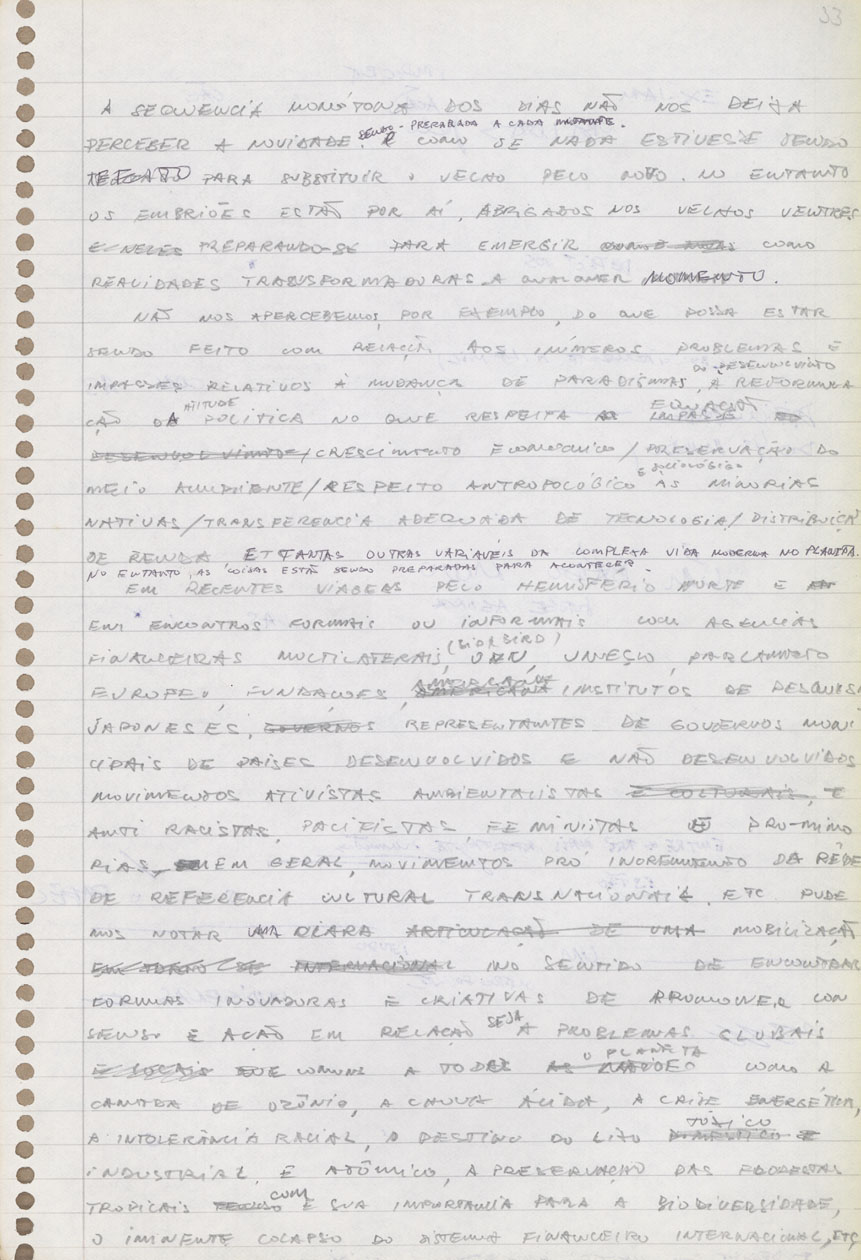 33
A SEQUENCIA MONÓTONA DOS DIAS NÃO NOS DEIXA
SENDO PREPARADA A CADA INSTANTE.
PERCEBER A NOVIDADE. É COMO SE NADA ESTIVESSE SENDO
TECTADO PARA SUBSTITUIR O VELHO PELO NOVO. NO ENTANTO
OS EMBRIÕES ESTÃO POR AÍ, ABRIGADOS NOS VELHOS VENTRES
E NELES PREPARANDO-SE PARA EMERGIR COMO
REALIDADES TRANSFORMADORAS A QUALQUER MOMENTO.
NÃO NOS APERCEBEMOS, POR EXEMPLO, DO QUE POSSA ESTAR
SENDO FEITO COM RELAÇÃO AOS INÚMEROS PROBLEMAS E
DESENVOLVIMTO
IMPASSES RELATIVOS À MUDANÇA DE PARADIGMAS, A REFORMULA
ATITUDE EQUAÇÃO
ÇÃO DA POLÍTICA NO QUE RESPEITA IMPASSE
DESENVOLVIMTO/CRESCIMENTO ECONOMICO/PRESERVAÇÃO DO
E SOCIOLÓGICO
MEIO AMBIENTE/RESPEITO ANTROPOLÓGICO AS MINORIAS
NATIVAS/TRANSFERENCIA ADEQUADA DE TECNOLOGIA/DISTRIBUIÇÃ
DE RENDA E TANTAS OUTRAS VARIÁVEIS DA COMPLEXA VIDA MODERNA NO PLANETA.
NO ENTANTO, AS COISAS ESTÃO SENDO PREPARADAS PARA ACONTECER.
EM RECENTES VIAGENS PELO HEMISFÉRIO NORTE E
EM ENCONTROS FORMAIS OU INFORMAIS COM AGENCIAS
(BID/BIRD)
FINANCEIRAS MULTILATERAIS, ONU, UNESCO, PARLAMENTO
EUROPEU, FUNDAÇÕES AMERICANA INSTITUTOS DE PESQUISA
JAPONESES, GOVERNOS REPRESENTANTES DE GOVERNOS MUNI
CIPAIS DE PAÍSES DESENVOLVIDOS E NÃO DESENVOLVIDOS
MOVIMENTOS ATIVISTAS AMBIENTALISTAS E CULTURAIS, E
ANTI RACISTAS, PACIFISTAS, FEMINISTAS PRO-MINO
RIAS, EM GERAL, MOVIMENTOS PRÓ INCREMENTO DA REDE
DE REFERENCIA CULTURAL TRANSNACIONAIS, ETC PUDE
MOS NOTAR UMA CLARA ARTICULAÇÃO DE UMA MOBILIZAÇÃ
INTERNACIONAL NO SENTIDO DE ENCONTRAR
FORMAS INOVADORAS E CRIATIVAS DE PROMOVER CON
SEJA
SENSO E AÇÃO EM RELAÇÃO A PROBLEMAS GLOBAIS
O PLANETA
E LOCAIS COMUNS A TODO AS NAÇÕES COMO A
CAMADA DE OZÔNIO, A CHUVA ÁCIDA, A CRISE ENERGÉTICA,
TÓXICO
A INTOLERÂNCIA RACIAL, O DESTINO DO LIXO DOMÉSTICO E
INDUSTRIAL, E ATÔMICO, A PRESERVAÇÃO DAS FLORESTAS
COM
TROPICAIS E SUA IMPORTANCIA PARA A BIODIVERSIDADE,
O IMINENTE COLAPSO DO SISTEMA FINANCEIRO INTERNACIONAL, ETC